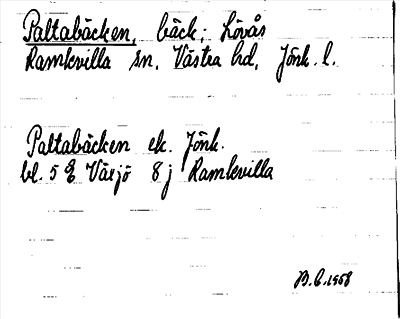 Paltabäcken, bäck; Lövås
Ramkvilla sn, Västra hd, Jönk. l.
Paltabäcken ek. Jönk.
bl. 5 E Växjö 8 j Ramkvilla
B.E. 1968